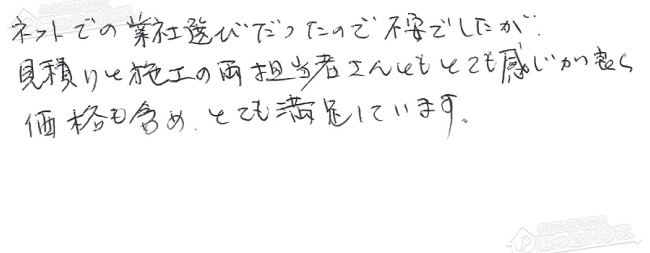 ネットでの業社選びだったので不安でしたが、
見積りと施工の両担当者さんともとても感じが良く
価格も含め、とても満足しています。